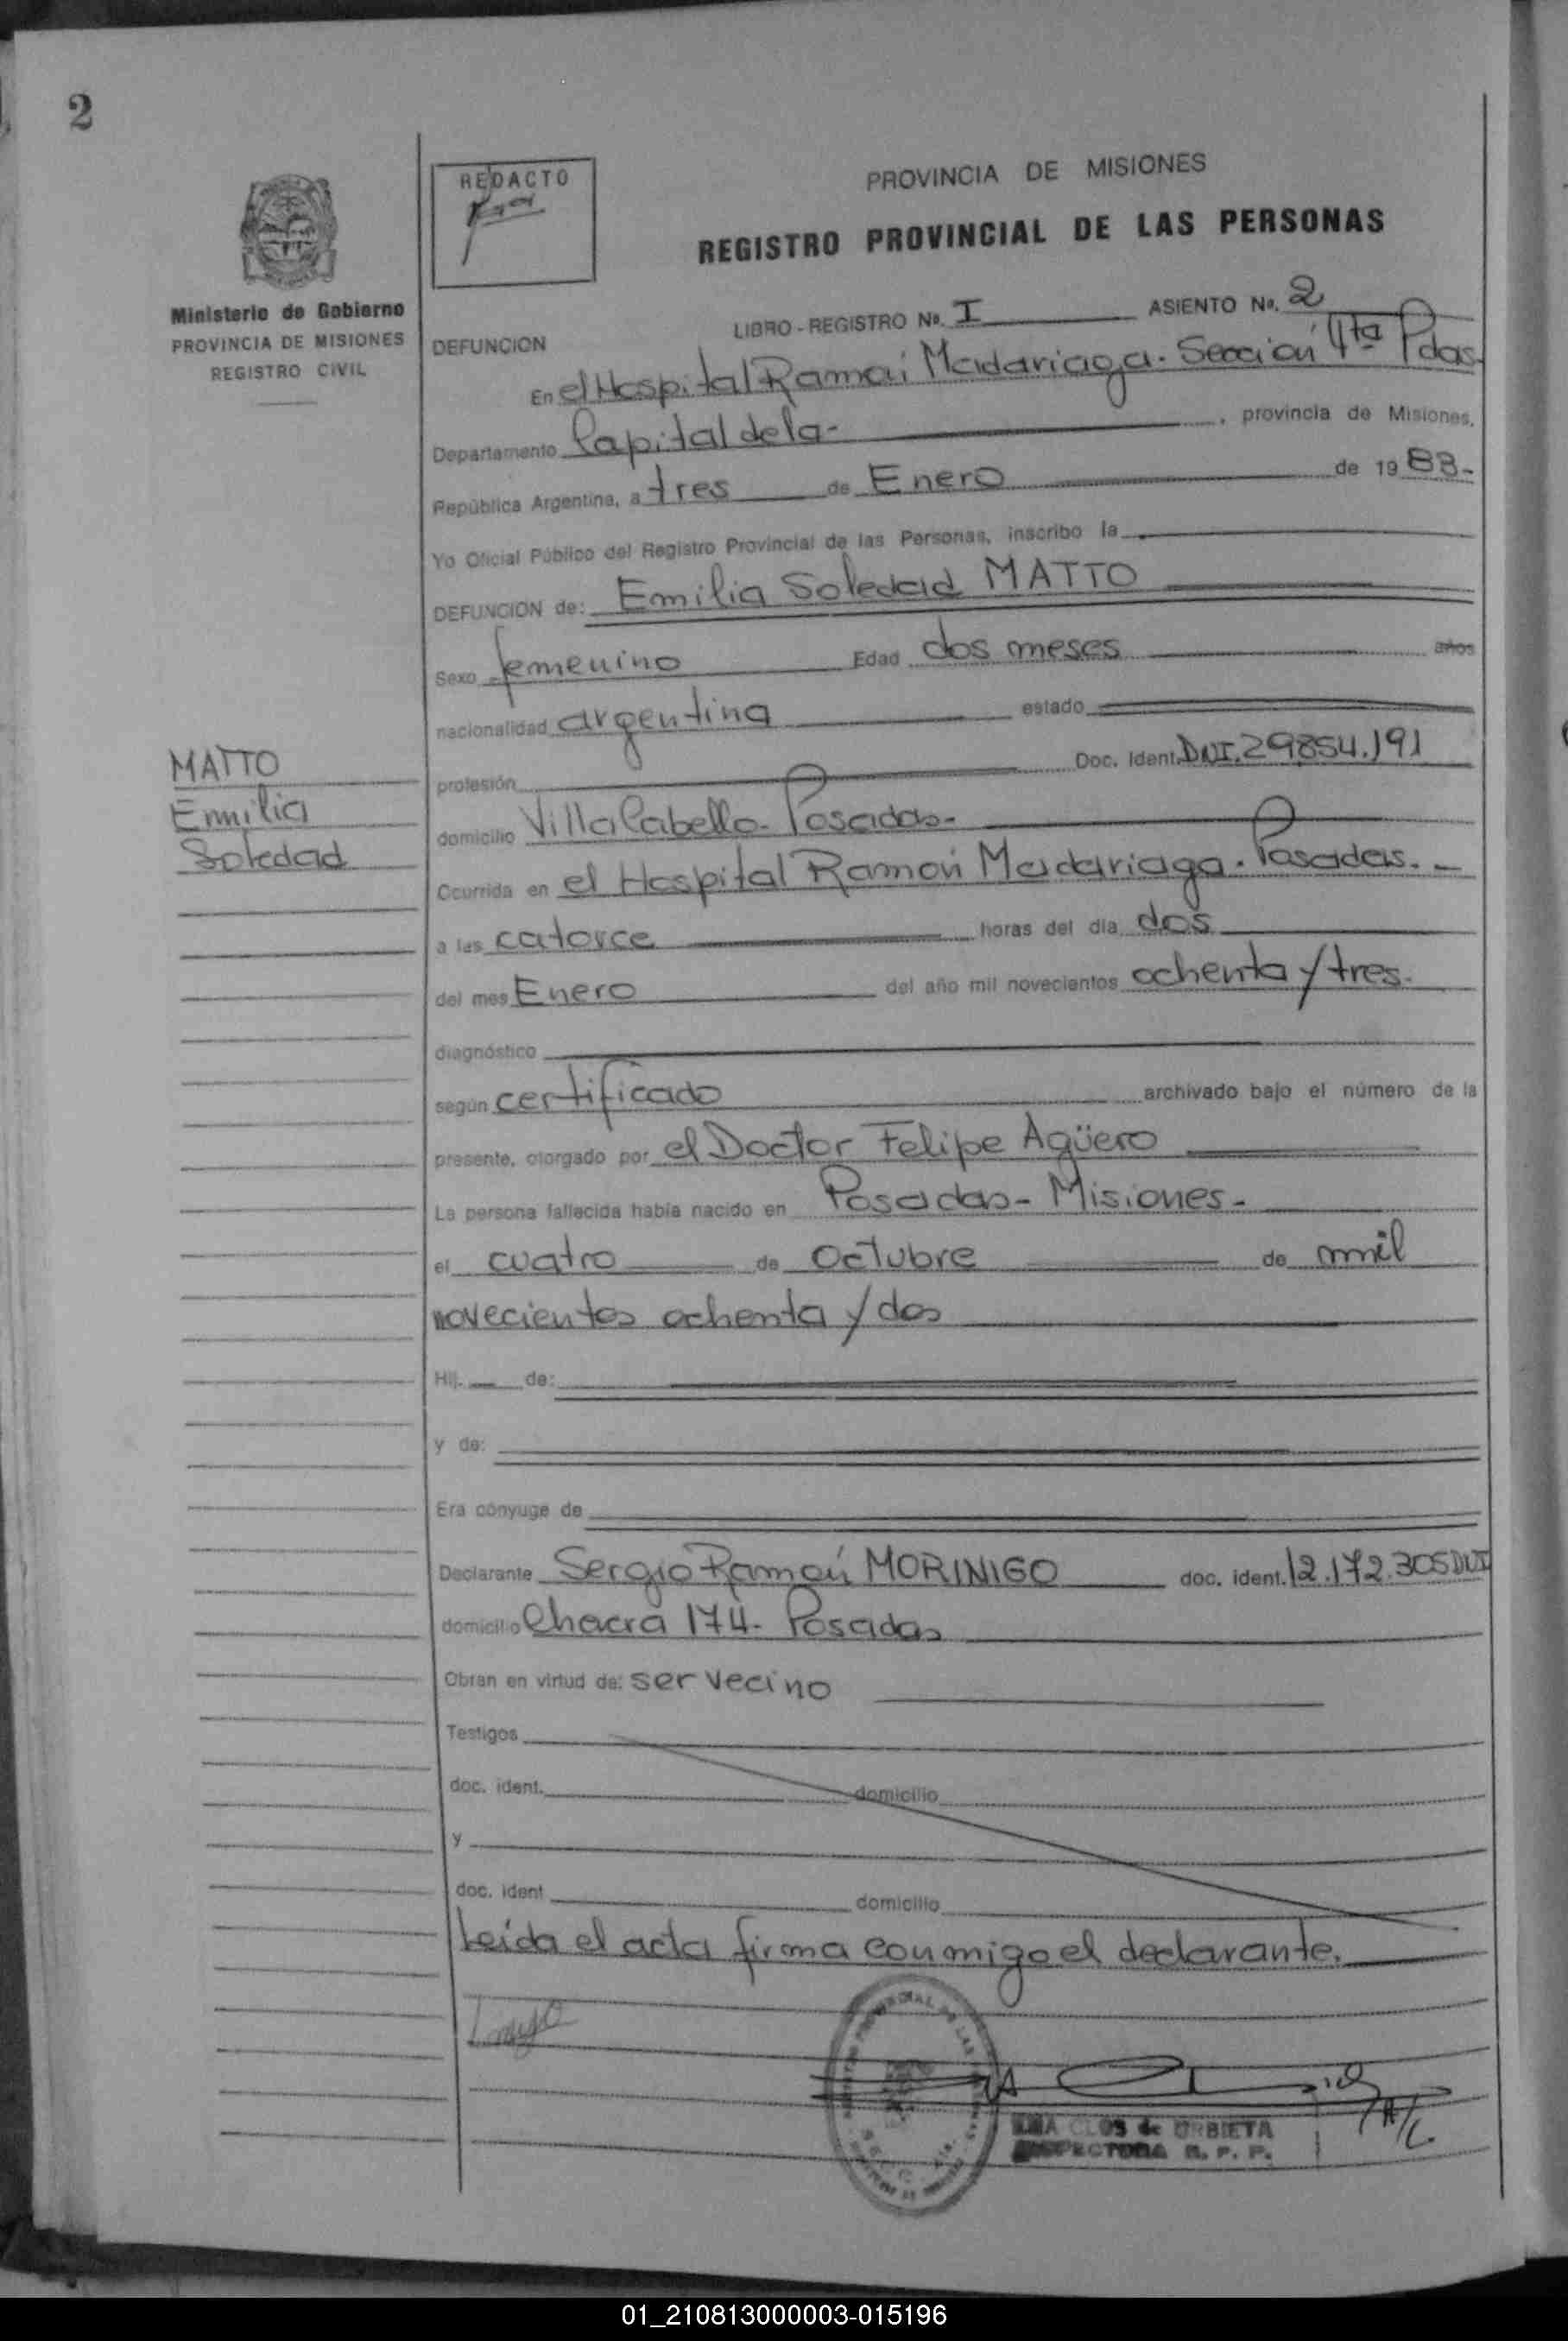 2
REDACTO
PROVINCIA DE MISIONES
REGISTRO PROVINCIAL DE LAS PERSONAS
Ministerio de Gobierno
PROVINCIA DE MISIONES
REGISTRO CIVIL
LIBRO - REGISTRO No. I ASIENTO No. 2
DEFUNCION
En el Hospital Ramón Madariaga. Sección 4ta Pdas.
Departamento Capital de la - , provincia de Misiones,
República Argentina, a tres de Enero de 19 83.-
Yo Oficial Público del Registro Provincial de las Personas, inscribo la
DEFUNCION de: Emilia Soledad MATTO
Sexo femenino Edad dos meses años
nacionalidad argentina estado
profesión Doc. Ident. DNI. 29854.191
MATTO
Emilia
Soledad
domicilio Villa Cabello - Posadas.-
Ocurrida en el Hospital Ramón Madariaga. Posadas. -
a las catorce horas del día dos
del mes Enero del año mil novecientos ochenta y tres.
diagnóstico
según certificado archivado bajo el número de la
presente, otorgado por el Doctor Felipe Agüero
La persona fallecida había nacido en Posadas - Misiones -
el cuatro de Octubre de mil
novecientos ochenta y dos
Hij. de:
y de:
Era cónyuge de
Declarante Sergio Ramón MORINIGO doc. ident. 12.172.305 DNI
domicilio Chacra 174. Posadas
Obran en virtud de: ser vecino
Testigos
doc. ident. domicilio
y
doc. ident domicilio
Leída el acta firma conmigo el declarante.
CLOS de URBIETA
INSPECTORA R. P. P.
01_210813000003-015196